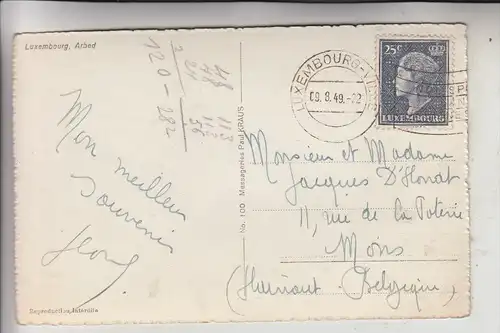 Luxembourg, Arbed
Mon meilleur
souvenir
Reproduction interdite
No. 100 Messageries Paul KRAUS
LUXEMBOURG-VILLE
09.8.49.-22
25c
LUXEMBOURG
Monsieur et Madame
Jacques D'Hondt
11, rue de la Poterie
Mons
(Hainaut - Belgique)
120 - 282